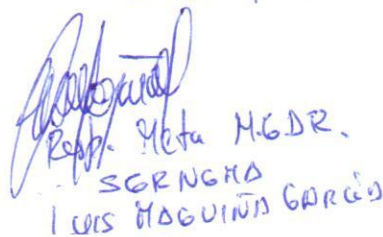 Resp. Meta M.G.D.R.
SGRNGMA
LUIS MAGUIÑA GARCÍA